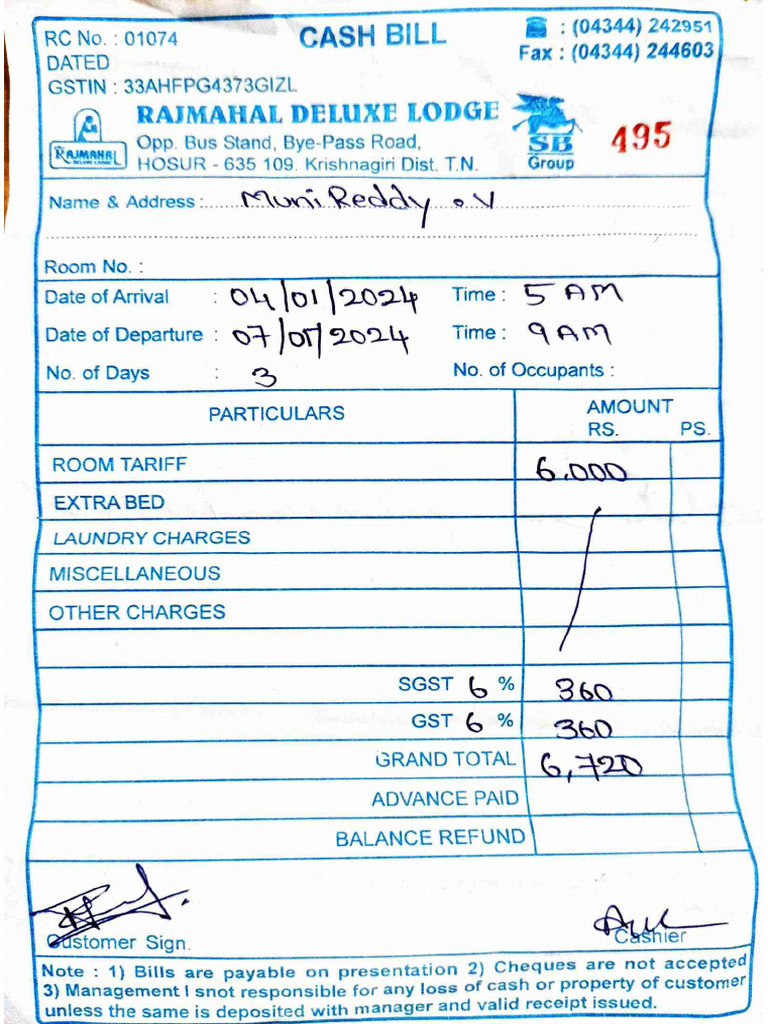 RC No. : 01074
CASH BILL
☎ : (04344) 242951
DATED
Fax : (04344) 244603
GSTIN : 33AHFPG4373GIZL
RAJMAHAL
RAJMAHAL DELUXE LODGE
Opp. Bus Stand, Bye-Pass Road,
HOSUR - 635 109. Krishnagiri Dist. T.N.
SB
Group
495
Name & Address : Muni Reddy . V
Room No. :
Date of Arrival : 04/01/2024 Time : 5 AM
Date of Departure : 07/01/2024 Time : 9 AM
No. of Days : 3 No. of Occupants :
PARTICULARS AMOUNT
RS. PS.
ROOM TARIFF 6.000
EXTRA BED
LAUNDRY CHARGES
MISCELLANEOUS
OTHER CHARGES
SGST 6 % 360
GST 6 % 360
GRAND TOTAL 6,720
ADVANCE PAID
BALANCE REFUND
Customer Sign. Cashier
Note : 1) Bills are payable on presentation 2) Cheques are not accepted
3) Management I snot responsible for any loss of cash or property of customer
unless the same is deposited with manager and valid receipt issued.